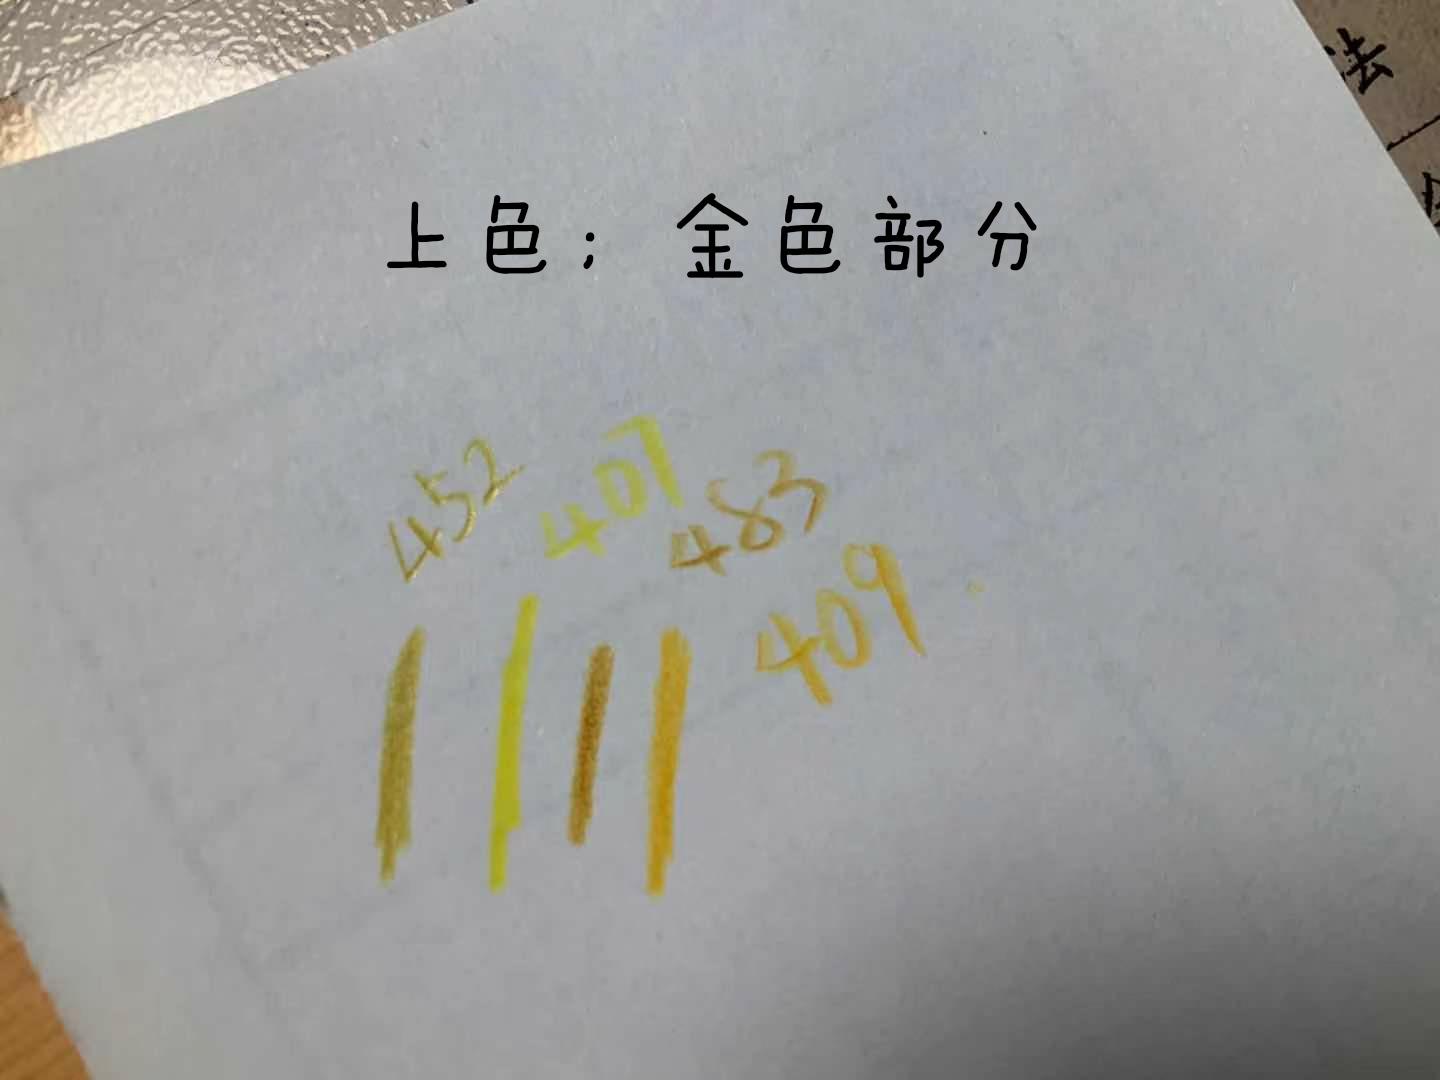 法
上色；金色部分
452 407 483
409